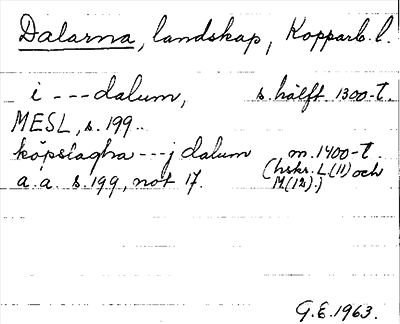 Dalarna, landskap, Kopparb. l.
i --- dalum, s. hälft. 1300-t.
MESL, s. 199.
köpslagha --- j dalum m. 1400-t.
(hskr. L (11) och
a.a. s. 199, not 17. M (12).)
G.E. 1963.